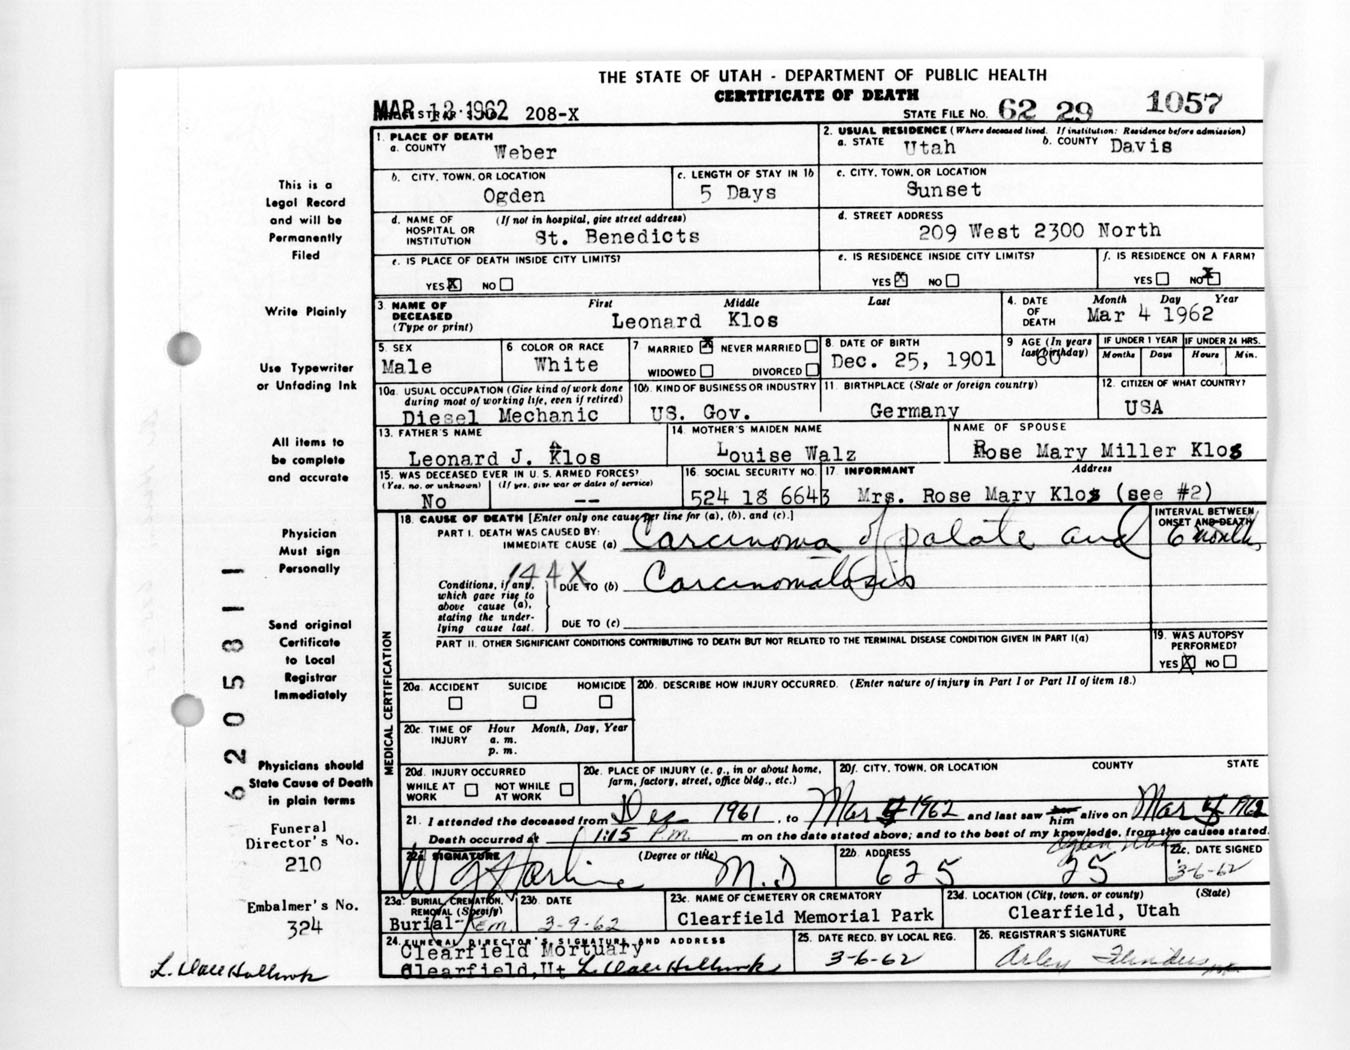 THE STATE OF UTAH - DEPARTMENT OF PUBLIC HEALTH
CERTIFICATE OF DEATH
MAR 12 1962 208-X
STATE FILE NO. 62 29 1057
1. PLACE OF DEATH
a. COUNTY Weber
2. USUAL RESIDENCE (Where deceased lived. If institution: Residence before admission)
a. STATE Utah b. COUNTY Davis
b. CITY, TOWN, OR LOCATION Ogden
c. LENGTH OF STAY IN 1b 5 Days
c. CITY, TOWN, OR LOCATION Sunset
d. NAME OF HOSPITAL OR INSTITUTION (If not in hospital, give street address) St. Benedicts
d. STREET ADDRESS 209 West 2300 North
e. IS PLACE OF DEATH INSIDE CITY LIMITS?
YES X NO
e. IS RESIDENCE INSIDE CITY LIMITS?
YES X NO
f. IS RESIDENCE ON A FARM?
YES NO X
3. NAME OF DECEASED (Type or print) First Middle Last
Leonard Klos
4. DATE OF DEATH Month Day Year
Mar 4 1962
5. SEX Male
6. COLOR OR RACE White
7. MARRIED X NEVER MARRIED
WIDOWED DIVORCED
8. DATE OF BIRTH Dec. 25, 1901
9. AGE (In years last birthday) 60
IF UNDER 1 YEAR Months Days
IF UNDER 24 HRS. Hours Min.
10a. USUAL OCCUPATION (Give kind of work done during most of working life, even if retired)
Diesel Mechanic
10b. KIND OF BUSINESS OR INDUSTRY US. Gov.
11. BIRTHPLACE (State or foreign country) Germany
12. CITIZEN OF WHAT COUNTRY? USA
13. FATHER'S NAME Leonard J. Klos
14. MOTHER'S MAIDEN NAME Louise Walz
NAME OF SPOUSE Rose Mary Miller Klos
15. WAS DECEASED EVER IN U. S. ARMED FORCES?
(Yes, no, or unknown) (If yes, give war or dates of service)
No --
16. SOCIAL SECURITY NO. 524 18 6643
17. INFORMANT Address
Mrs. Rose Mary Klos (see #2)
MEDICAL CERTIFICATION
18. CAUSE OF DEATH [Enter only one cause per line for (a), (b), and (c).]
PART I. DEATH WAS CAUSED BY:
IMMEDIATE CAUSE (a) Carcinoma of palate and
INTERVAL BETWEEN ONSET AND DEATH
6 months
144X
Conditions, if any, which gave rise to above cause (a), stating the underlying cause last.
DUE TO (b) Carcinomatosis
DUE TO (c)
PART II. OTHER SIGNIFICANT CONDITIONS CONTRIBUTING TO DEATH BUT NOT RELATED TO THE TERMINAL DISEASE CONDITION GIVEN IN PART I(a)
19. WAS AUTOPSY PERFORMED?
YES X NO
20a. ACCIDENT SUICIDE HOMICIDE
20b. DESCRIBE HOW INJURY OCCURRED. (Enter nature of injury in Part I or Part II of item 18.)
20c. TIME OF INJURY Hour a. m. p. m. Month, Day, Year
20d. INJURY OCCURRED
WHILE AT WORK NOT WHILE AT WORK
20e. PLACE OF INJURY (e. g., in or about home, farm, factory, street, office bldg., etc.)
20f. CITY, TOWN, OR LOCATION COUNTY STATE
21. I attended the deceased from Dec 1961, to Mar 4 1962 and last saw him alive on Mar 4 1962
Death occurred at 1:15 P.m. m on the date stated above; and to the best of my knowledge, from the causes stated.
22a. SIGNATURE (Degree or title) M.D
22b. ADDRESS 625 25
22c. DATE SIGNED 3-6-62
23a. BURIAL, CREMATION, REMOVAL (Specify) Burial-Rem.
23b. DATE 3-9-62
23c. NAME OF CEMETERY OR CREMATORY
Clearfield Memorial Park
23d. LOCATION (City, town, or county) (State)
Clearfield, Utah
24. FUNERAL DIRECTOR'S SIGNATURE AND ADDRESS
Clearfield Mortuary
Clearfield, Ut L. Dale Holbrook
25. DATE RECD. BY LOCAL REG. 3-6-62
26. REGISTRAR'S SIGNATURE
Arley Flinders
This is a
Legal Record
and will be
Permanently
Filed
Write Plainly
Use Typewriter
or Unfading Ink
All items to
be complete
and accurate
Physician
Must sign
Personally
Send original
Certificate
to Local
Registrar
Immediately
Physicians should
State Cause of Death
in plain terms
Funeral
Director's No.
210
Embalmer's No.
324
L. Dale Holbrook
6205811